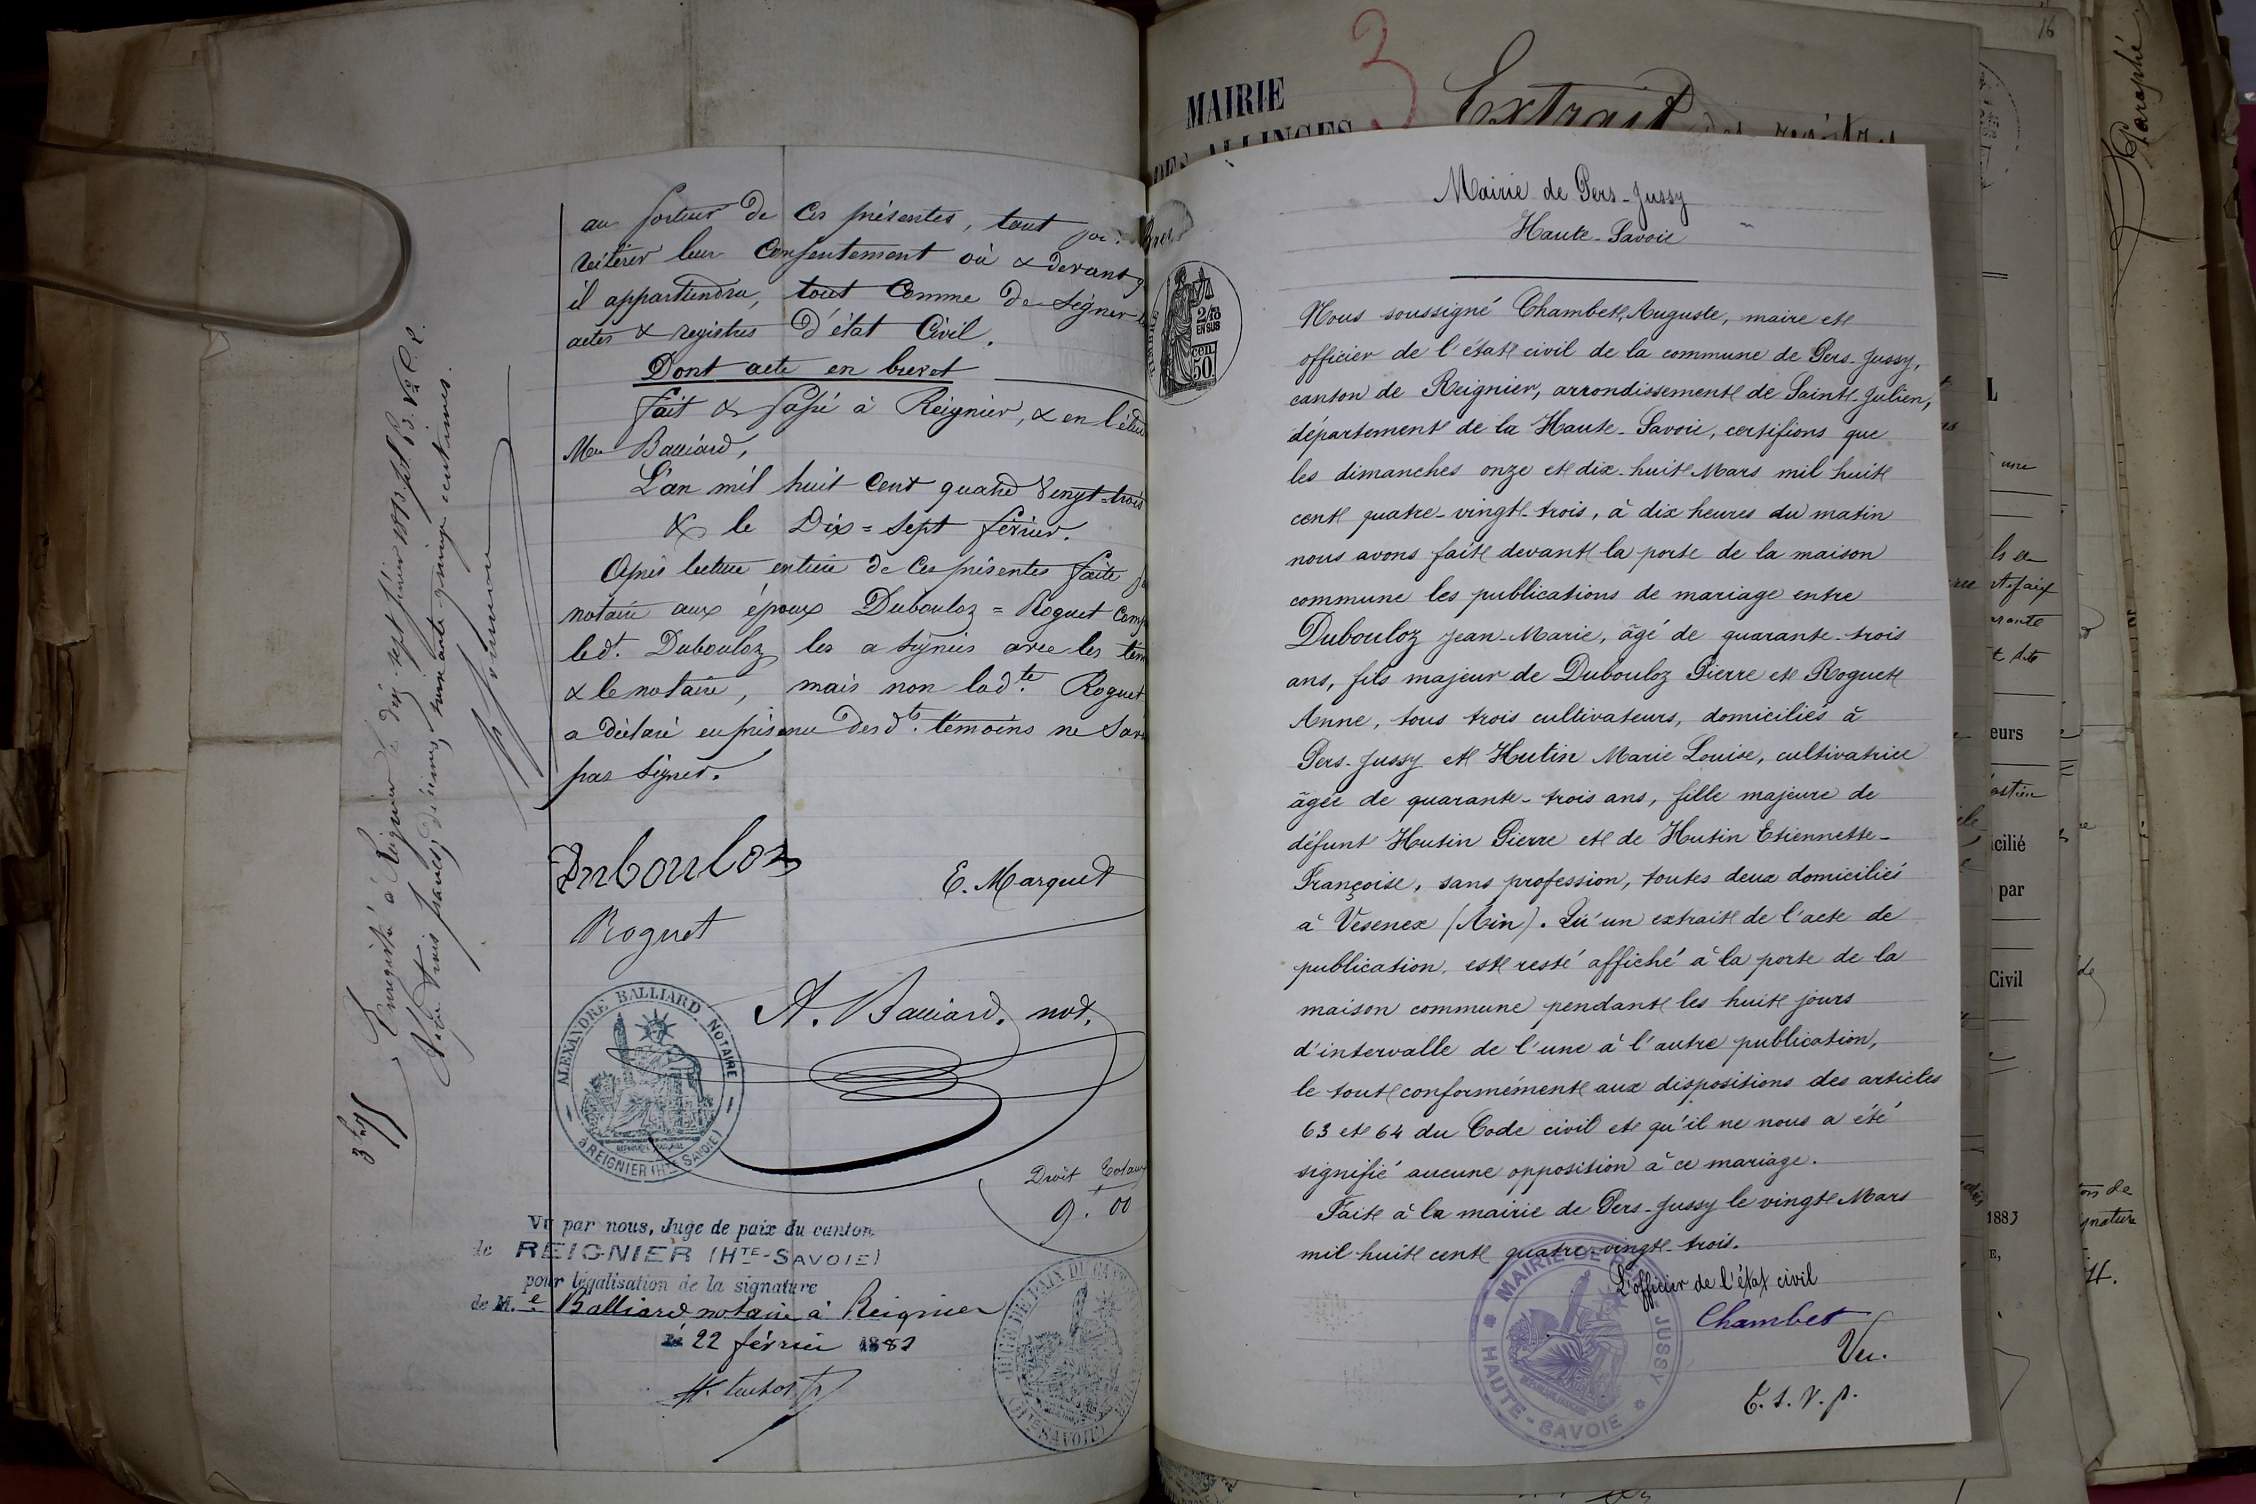 au porteur de ces présentes, tout pour
réitérer leur consentement où & devant
il appartiendra, tout comme de signer
actes & registres d'état Civil.
Dont acte en brevet
fait & passé à Reignier, & en l'étude
Me Balliard,
L'an mil huit cent quatre vingt-trois
& le Dix=sept février.
Après lecture entière de ces présentes faite
notaire aux époux Dubouloz=Roguet
led. Dubouloz les a signées avec les
& le notaire, mais non lad.te Roguet
a déclaré en présence desd.ts témoins ne
pas signer.
Dubouloz
E. Marquet
Roguet
A. Balliard. not.
ALEXANDRE BALLIARD. NOTAIRE
à REIGNIER (HTE SAVOIE)
Droit
9. 00
Vu par nous, Juge de paix du canton
de REIGNIER (HTE-SAVOIE)
pour légalisation de la signature
de M.e Balliard, notaire à Reignier
le 22 février 1883
Enregistré à Reignier le dix-sept février 1883
trois francs, décimes soixante-quinze centimes.
3 75
MAIRIE
DES ALLINGES
3
Extrait des registres
16
Paraphé
TIMBRE
2/10
EN SUS
cen.
50
Mairie de Pers-Jussy
Haute-Savoie
Nous soussigné Chambet, Auguste, maire et
officier de l'état civil de la commune de Pers-Jussy,
canton de Reignier, arrondissement de Saint-Julien,
département de la Haute-Savoie, certifions que
les dimanches onze et dix-huit Mars mil huit
cent quatre-vingt-trois, à dix heures du matin
nous avons fait devant la porte de la maison
commune les publications de mariage entre
Dubouloz Jean-Marie, âgé de quarante-trois
ans, fils majeur de Dubouloz Pierre et Roguet
Anne, tous trois cultivateurs, domiciliés à
Pers-Jussy et Hutin Marie Louise, cultivatrice
âgée de quarante-trois ans, fille majeure de
défunt Hutin Pierre et de Hutin Etiennette-
Françoise, sans profession, toutes deux domiciliés
à Vesenex (Ain). Qu'un extrait de l'acte de
publication est resté affiché à la porte de la
maison commune pendant les huit jours
d'intervalle de l'une à l'autre publication,
le tout conformément aux dispositions des articles
63 et 64 du Code civil et qu'il ne nous a été
signifié aucune opposition à ce mariage.
Fait à la mairie de Pers-Jussy le vingt Mars
mil huit cent quatre-vingt-trois.
L'officier de l'état civil
Chambet
Vu.
T. S. V. p.
MAIRIE DE PERS JUSSY
HAUTE-SAVOIE
JUGE DE PAIX DU CANTON
(HTE SAVOIE)
une
eurs
icilié
par
Civil
1883